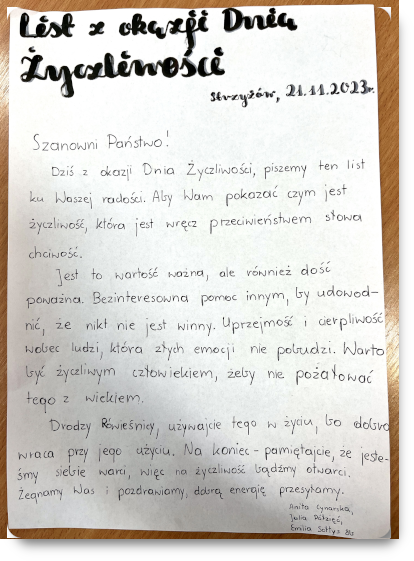 List z okazji Dnia
Życzliwości
Strzyżów, 21.11.2023r.
Szanowni Państwo!
Dziś z okazji Dnia Życzliwości, piszemy ten list
ku Waszej radości. Aby Wam pokazać czym jest
życzliwość, która jest wręcz przeciwieństwem słowa
chciwość.
Jest to wartość ważna, ale również dość
poważna. Bezinteresowna pomoc innym, by udowod-
nić, że nikt nie jest winny. Uprzejmość i cierpliwość
wobec ludzi, która złych emocji nie pobudzi. Warto
być życzliwym człowiekiem, żeby nie pożałować
tego z wiekiem.
Drodzy Rówieśnicy, używajcie tego w życiu, bo dobro
wraca przy jego użyciu. Na koniec - pamiętajcie, że jeste-
śmy siebie warci, więc na życzliwość bądźmy otwarci.
Żegnamy Was i pozdrawiamy, dobrą energię przesyłamy.
Anita Cynarska,
Julia
Emilia Sołtys 8b